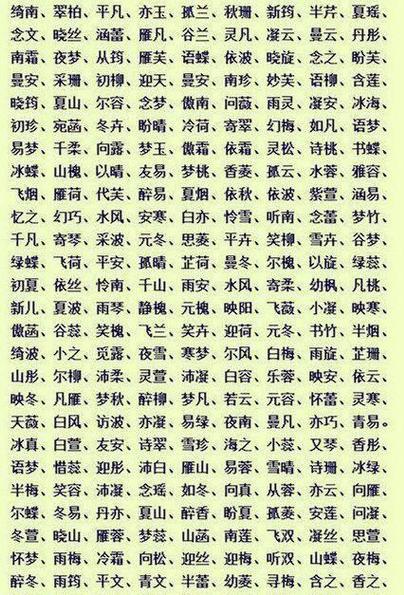 绮南、翠柏、平凡、亦玉、孤兰、秋珊、新筠、半芹、夏瑶、
念文、晓丝、涵蕾、雁凡、谷兰、灵凡、凝云、曼云、丹彤、
南霜、夜梦、从筠、雁芙、语蝶、依波、晓旋、念之、盼芙、
曼安、采珊、初柳、迎天、曼安、南珍、妙芙、语柳、含莲、
晓筠、夏山、尔容、念梦、傲南、问薇、雨灵、凝安、冰海、
初珍、宛菡、冬卉、盼晴、冷荷、寄翠、幻梅、如凡、语梦、
易梦、千柔、向露、梦玉、傲霜、依霜、灵松、诗桃、书蝶、
冰蝶、山槐、以晴、友易、梦桃、香菱、孤云、水蓉、雅容、
飞烟、雁荷、代芙、醉易、夏烟、依秋、依波、紫萱、涵易、
忆之、幻巧、水风、安寒、白亦、怜雪、听南、念蕾、梦竹、
千凡、寄琴、采波、元冬、思菱、平卉、笑柳、雪卉、谷梦、
绿蝶、飞荷、平安、孤晴、芷荷、曼冬、尔槐、以旋、绿蕊、
初夏、依丝、怜南、千山、雨安、水风、寄柔、幼枫、凡桃、
新儿、夏波、雨琴、静槐、元槐、映阳、飞薇、小凝、映寒、
傲菡、谷蕊、笑槐、飞兰、笑卉、迎荷、元冬、书竹、半烟、
绮波、小之、觅露、夜雪、寒梦、尔风、白梅、雨旋、芷珊、
山彤、尔柳、沛柔、灵萱、沛凝、白容、乐蓉、映安、依云、
映冬、凡雁、梦秋、醉柳、梦凡、若云、元容、怀蕾、灵寒、
天薇、白风、访波、亦凝、易绿、夜南、曼凡、亦巧、青易。
冰真、白萱、友安、诗翠、雪珍、海之、小蕊、又琴、香彤、
语梦、惜蕊、迎彤、沛白、雁山、易蓉、雪晴、诗珊、冰绿、
半梅、笑容、沛凝、念瑶、如冬、向真、从蓉、亦云、向雁、
尔蝶、冬易、丹亦、夏山、醉香、盼夏、孤菱、安莲、问凝、
冬萱、晓山、雁蓉、梦蕊、山菡、南莲、飞双、凝丝、思萱、
怀梦、雨梅、冷霜、向松、迎丝、迎梅、听双、山蝶、夜梅、
醉冬、雨筠、平文、青文、半蕾、幼菱、寻梅、含之、香之、